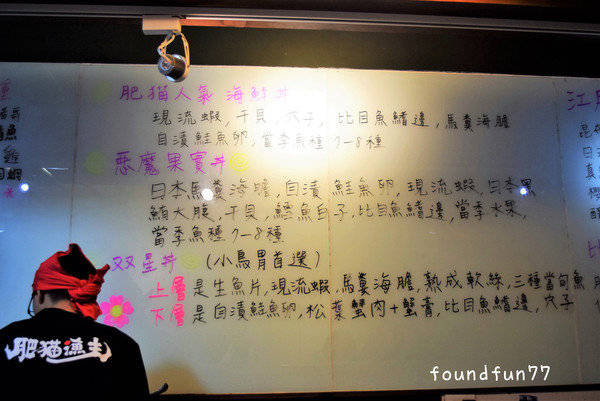 肥猫人氣 海鮮丼
現流蝦，干貝，穴子，比目魚鰭邊，馬糞海膽
自漬鮭魚卵，當季魚種7-8種
惡魔果實丼
日本馬糞海膽，自漬鮭魚卵，現流蝦，日本黑
鮪大腹，干貝，鱈魚白子，比目魚鰭邊，當季水果，
當季魚種7-8種
双星丼 (小鳥胃首選)
上層是生魚片，現流蝦，馬糞海膽，熟成軟絲，三種當旬魚
下層是自漬鮭魚卵，松葉蟹肉+蟹膏，比目魚鰭邊，穴子
江
肥猫漁夫
foundfun77